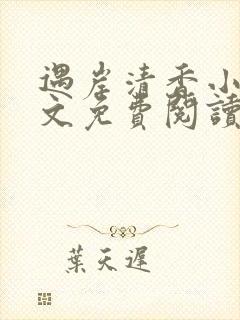 遇岸清香小
文免費閱讀
葉天遲